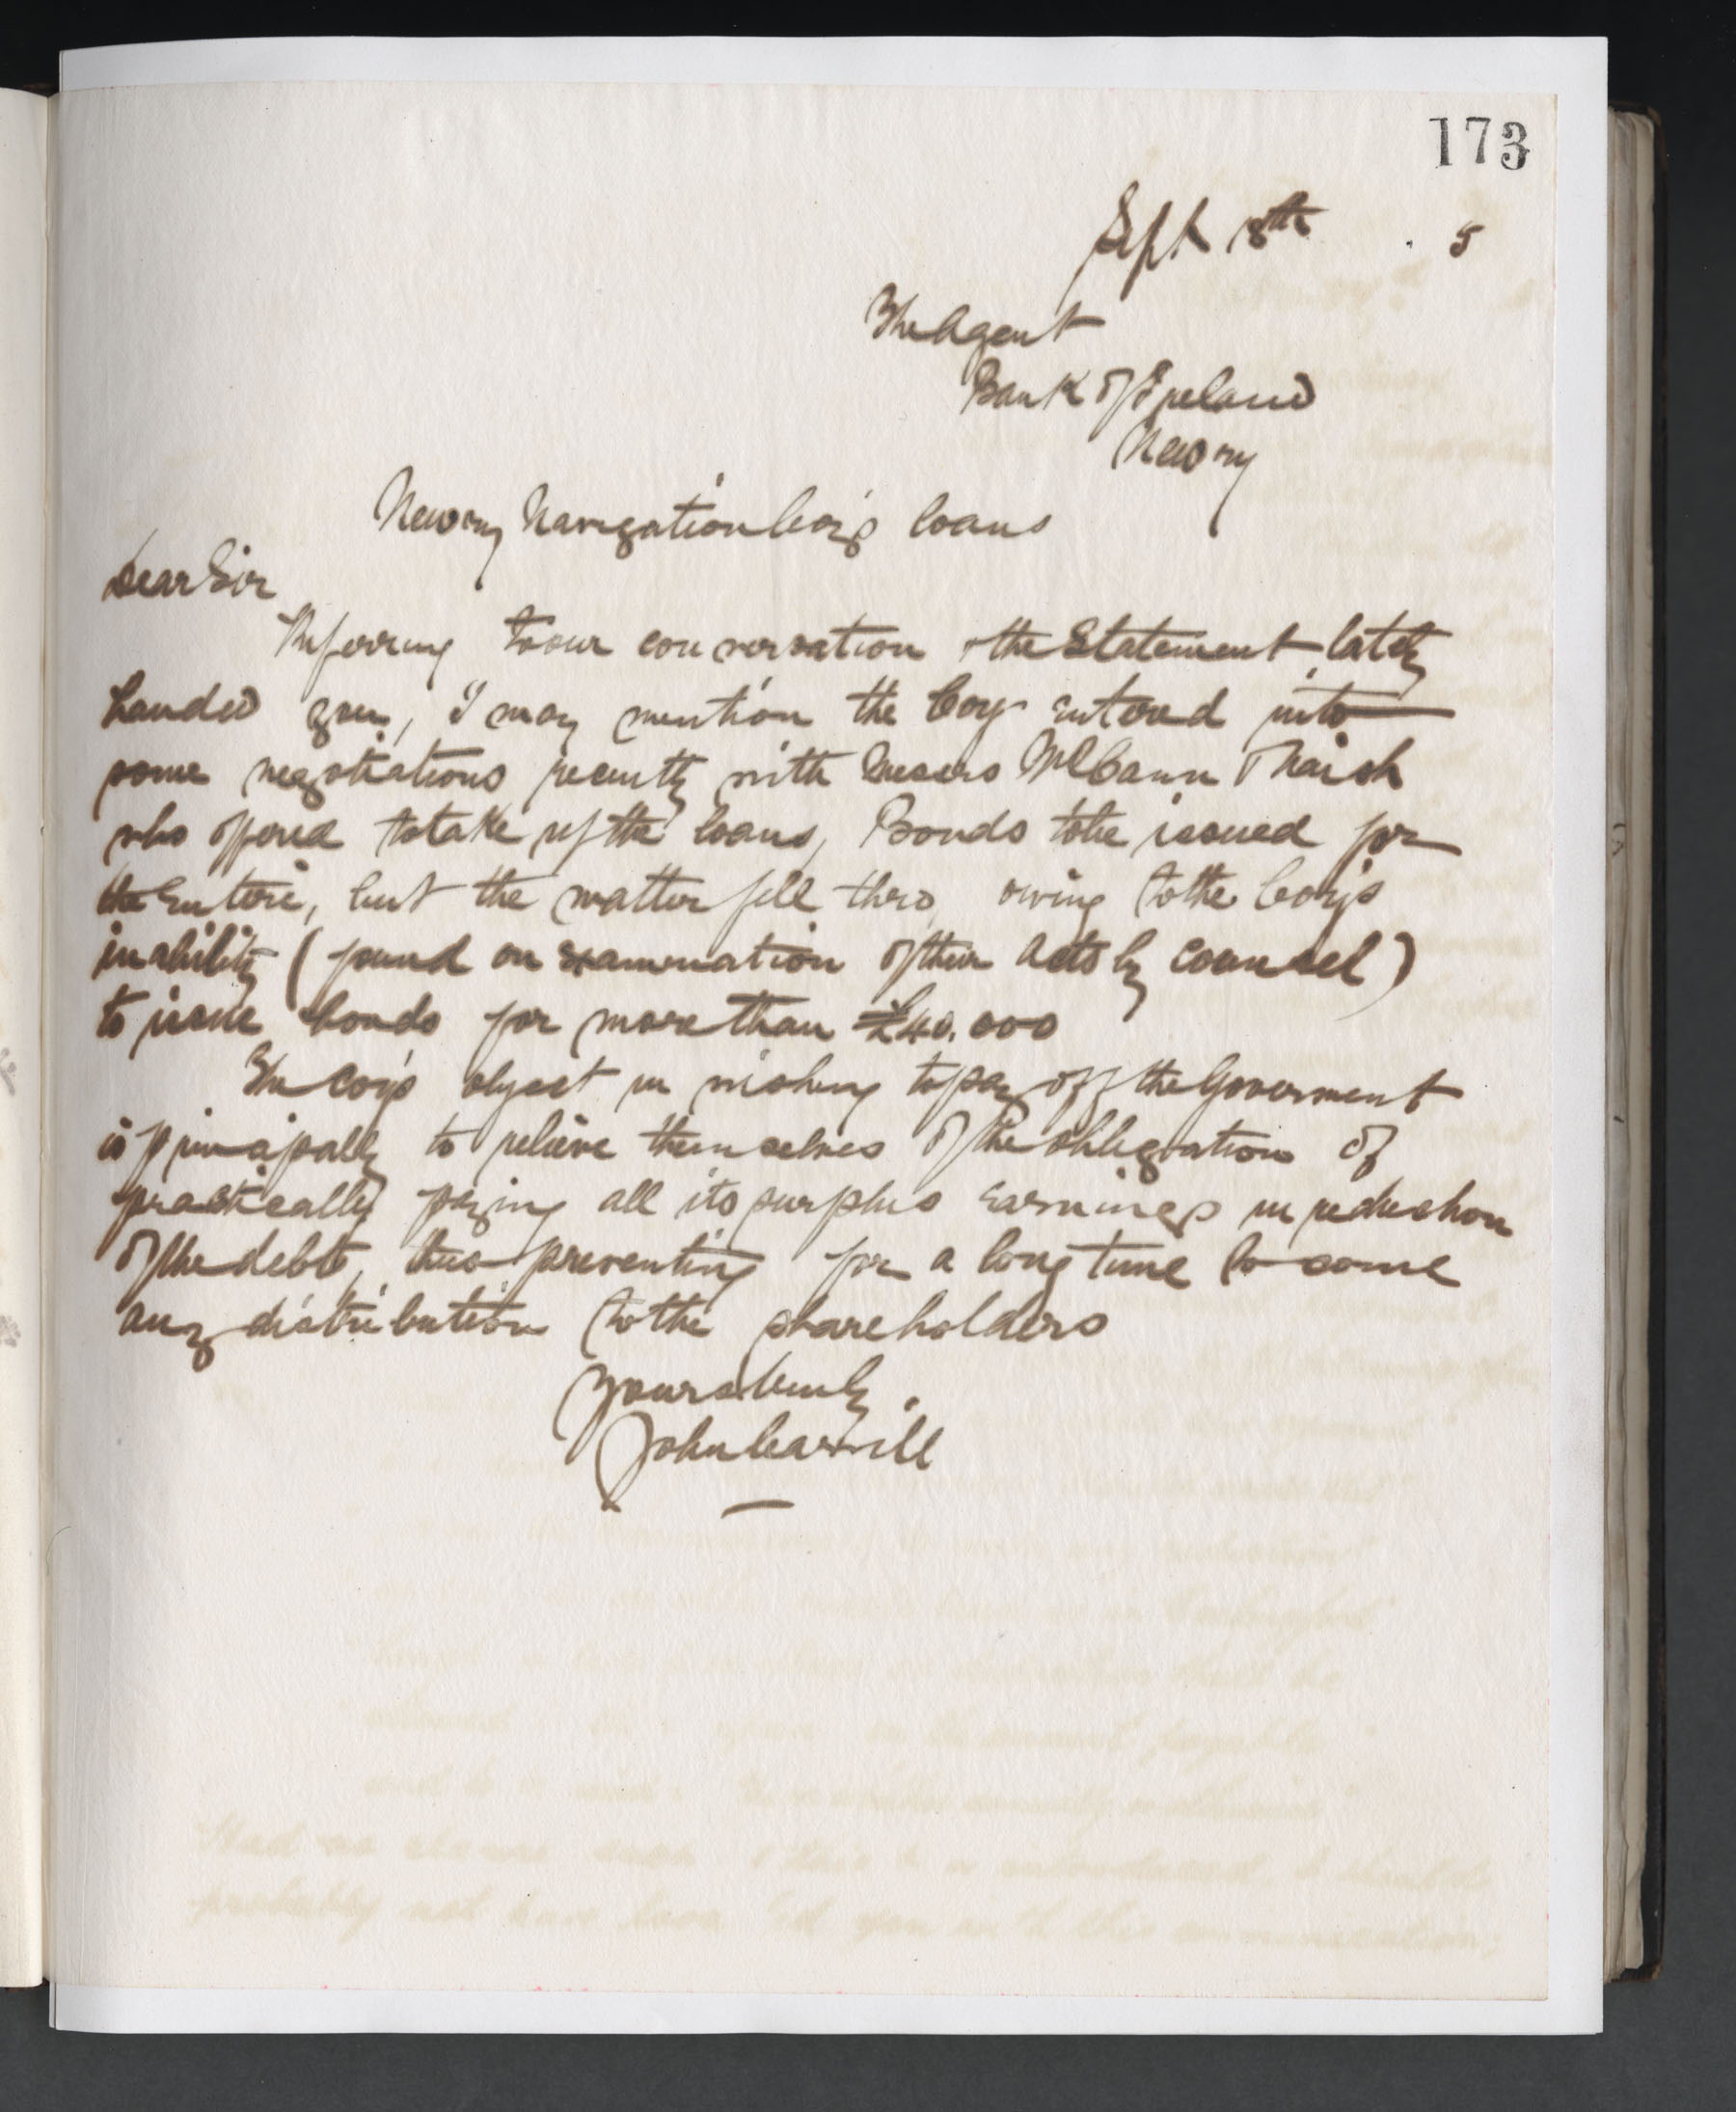 173
Sept. 18th 5
The Agent
Bank of Ireland
Newry
Newry Navigation Coy's loans
Dear Sir
Referring to our conversation & the Statement lately
handed you, I may mention the Coy entered into
some negotiations recently with Messrs McCann & Naish
who offered to take up the loans, Bonds to be issued for
the Entire, but the matter fell thro, owing to the Coy's
inability (found on examination of their Acts by Counsel)
to issue bonds for more than £40.000
The Coy's object in wishing to pay off the Goverment
is principally to relieve themselves of the obligation of
practically paying all its surplus earnings in reduction
of the debts, thus preventing for a long time to come
any distribution to the shareholders
Yours truly
John Carvill